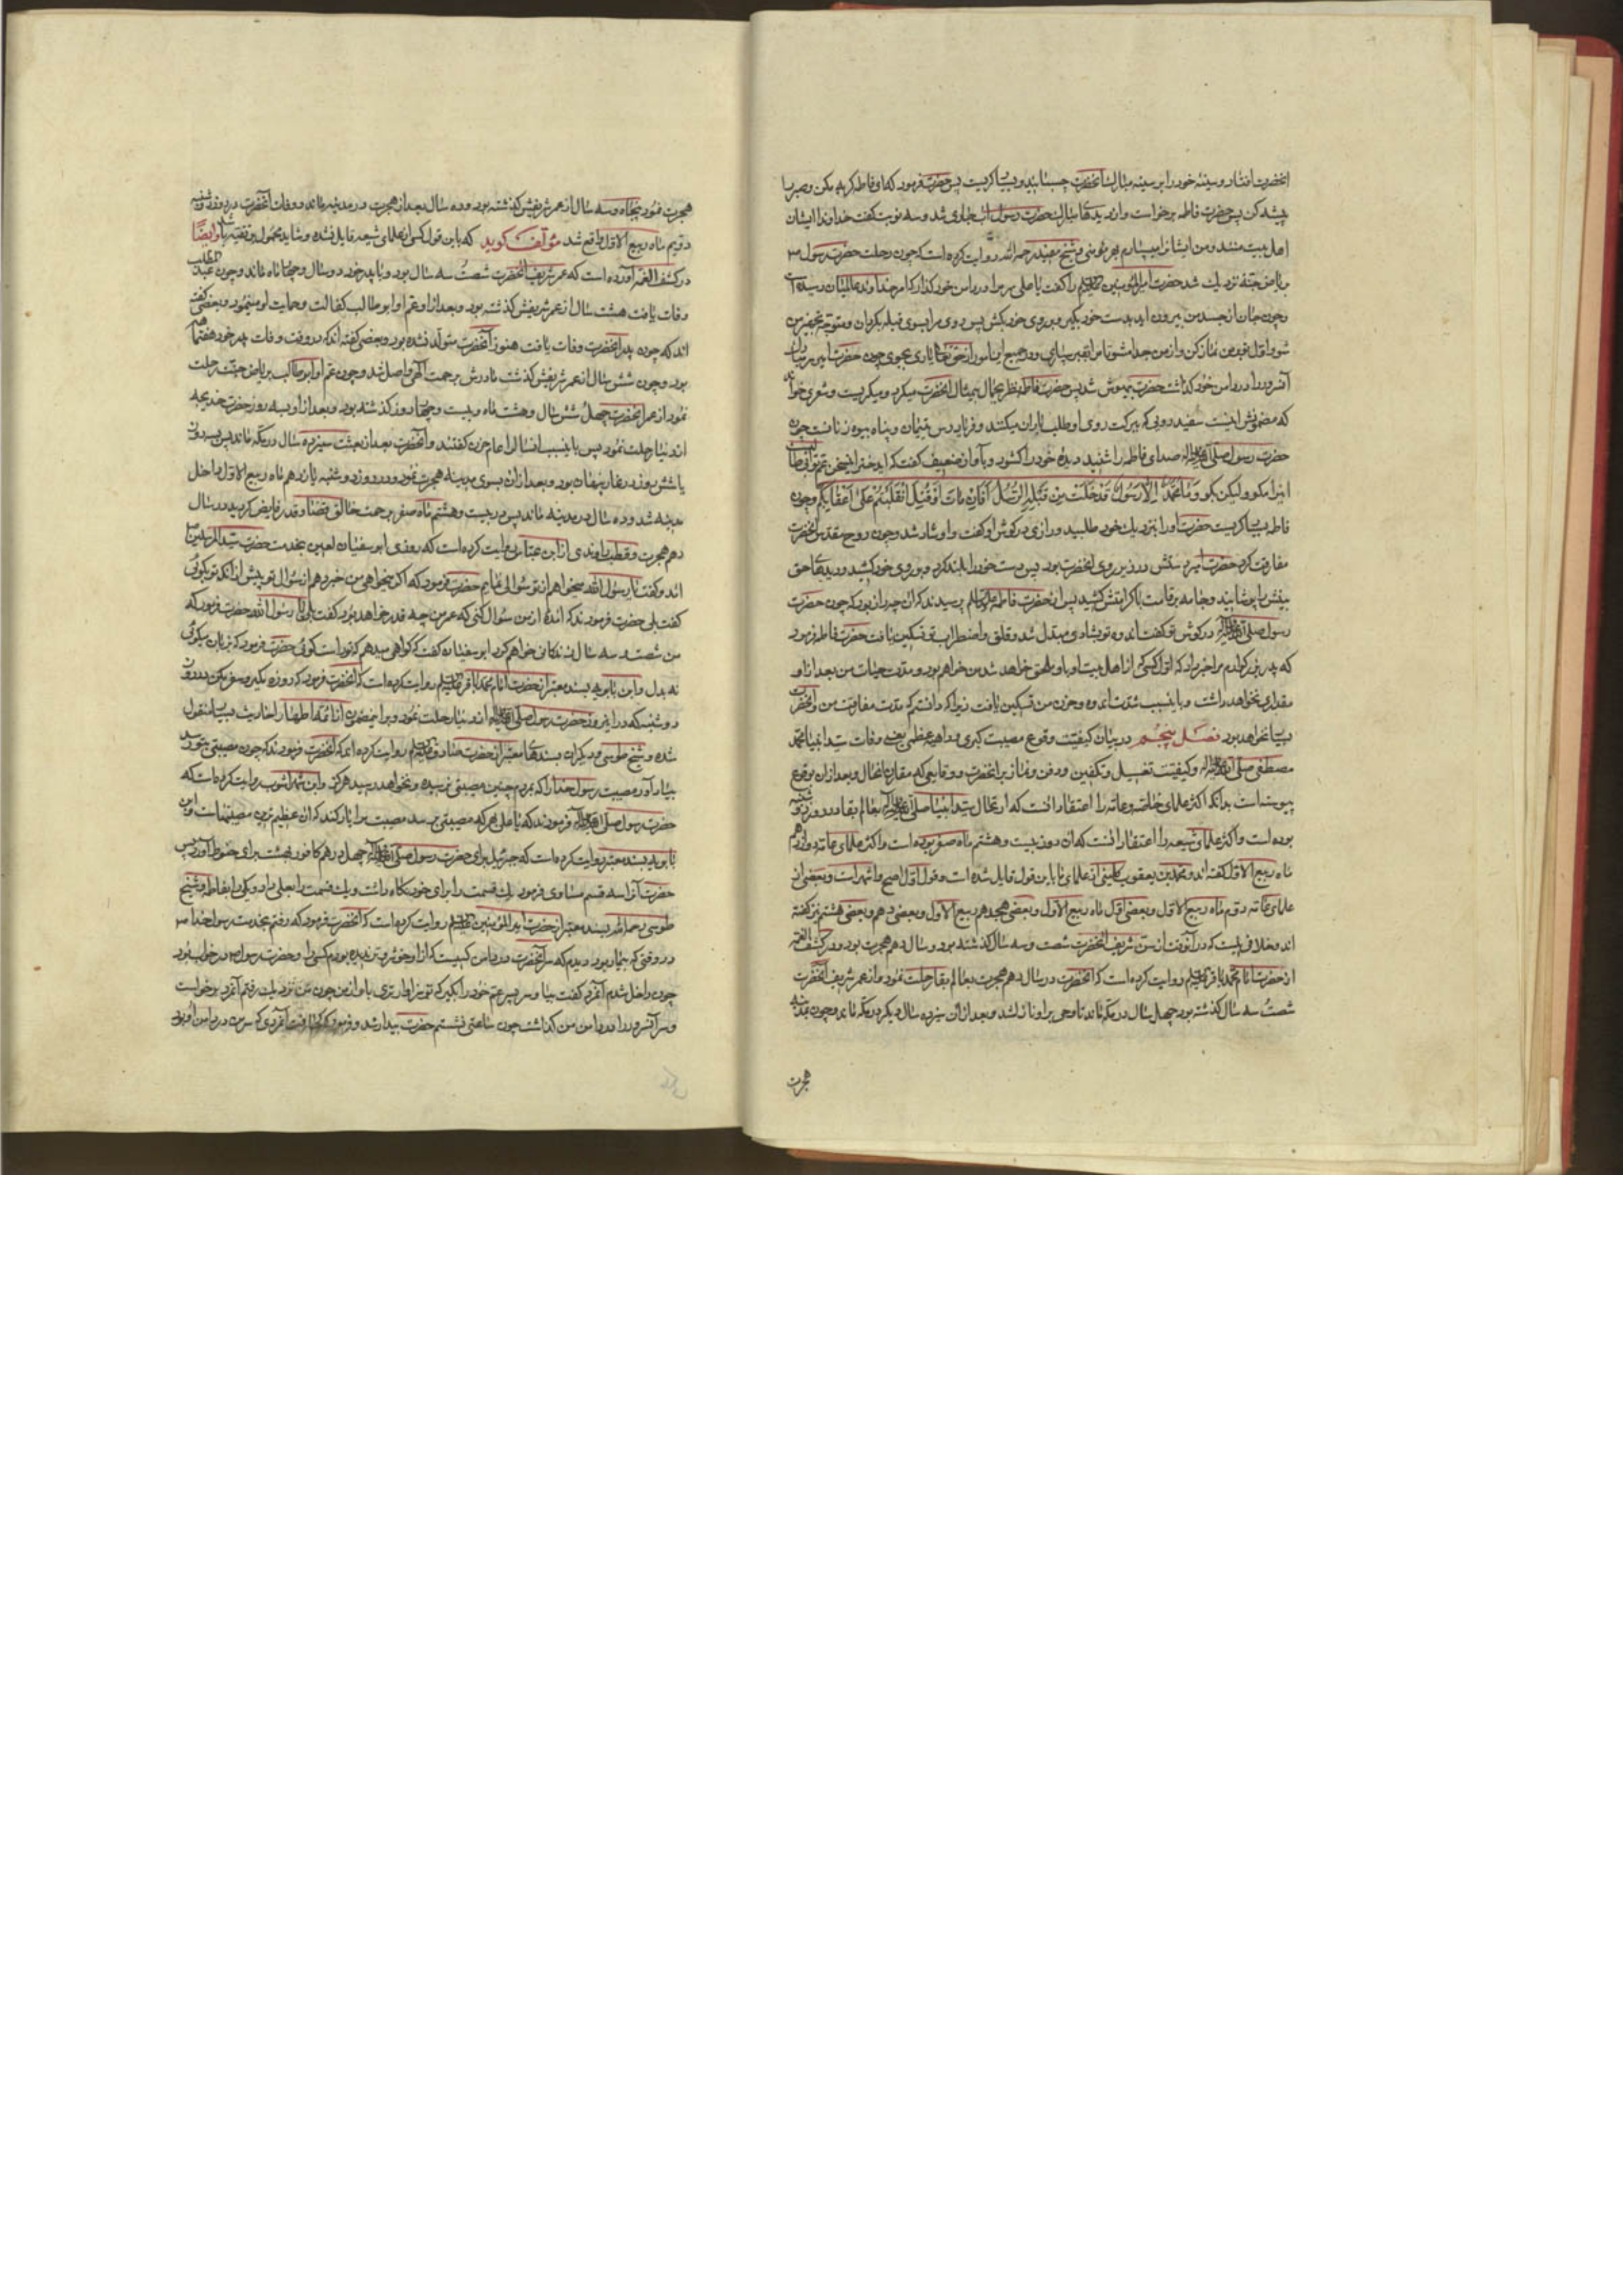 انحضرت افتاد و سینهٔ خود را بر سینه مبارک انحضرت چسبانید و بسیار کریست پس حضرت فرمود که ای فاطمه کریه مکن و صبر را
پیشه کن پس حضرت فاطمه برخواست و از دیدهای مبارک حضرت رسول اب جاری شد و سه نوبت کفت خداوندا ایشان
اهل بیت منند و من ایشانرا میسپارم بهر مؤمنی و شیخ مفید رحمه الله روایت کرده است که چون رحلت حضرت رسول ص
بریاض جنة نزدیک شد حضرت امیرالمؤمنین علیه السلم را کفت یا علی سر مرا در دامن خود کذار که امر خداوند عالمیان رسیده است
و چون جان از جسد من بیرون اید بدست خود بکیر و بر روی خود بکش پس روی مرا بسوی قبله بکردان و متوجه تجهیز من
شو و اول تو بر من نماز کن و از من جدا مشو تا مرا بقبر بسپاری و در جمیع این امور از حق تعالی یاری بجوی چون حضرت امیر سر مبارک
آنسرور را در دامن خود کذاشت حضرت بیهوش شد پس حضرت فاطمه نظر بجمال بیمثال انحضرت میکرد و میکریست و شعری خواند
که مضمونش اینست سفید رویی که ببرکت روی او طلب باران میکنند و فریادرس یتیمان و پناه بیوه زنانست چون
حضرت رسول صلی الله علیه واله صدای فاطمه را شنید دیدهٔ خود را کشود و بآواز ضعیف کفت که ای دختر اینسخن عم تو ابی طالبست
اینرا مکو ولیکن بکو وَمَا مُحَمَّدٌ اِلَّا رَسُولٌ قَدْ خَلَتْ مِنْ قَبْلِهِ الرُّسُلُ اَفَاِنْ مَاتَ اَوْ قُتِلَ انْقَلَبْتُمْ عَلیٰ اَعْقَابِکُمْ و چون
فاطمه بسیار کریست حضرت او را نزدیک خود طلبید و رازی در کوش او کفت و او شاد شد و چون روح مقدس انحضرت
مفارقت کرد حضرت امیر دستش در زیر روی انحضرت بود پس دست خود را بلند کرد و بر روی خود کشید و دیدهای حق
بینش را پوشانید و جامه بر قامت با کرامتش کشید پس از حضرت فاطمه علیها السلم پرسیدند که ان چه راز بود که چون حضرت
رسول صلی الله علیه واله در کوش تو کفت اندوه تو بشادی مبدل شد و قلق و اضطراب تو تسکین یافت حضرت فاطمه فرمود
که پدر بزرکوارم مرا خبر داد که اول کسی که از اهل بیت او باو ملحق خواهد شد من خواهم بود و مدت حیات من بعد از او
مقداری نخواهد داشت و باینسبب شدت اندوه و حزن من تسکین یافت زیرا که دانستم که مدت مفارقت من و انحضرت
بسیار نخواهد بود فصل پنجم در بیان کیفیت وقوع مصیبت کبری و داهیه عظمی یعنی وفات سید انبیا محمد
مصطفی صلی الله علیه واله و کیفیت تغسیل و تکفین و دفن و نماز بر انحضرت و وقایعی که مقارن انحال و بعد از ان بوقوع
پیوسته است بدانکه اکثر علمای خاصه و عامه را اعتقاد انست که ارتحال سید انبیا صلی الله علیه واله بعالم بقا در روز دوشنبه
بوده است و اکثر علمای شیعه را اعتقاد انست که ان روز بیست و هشتم ماه صفر بوده است و اکثر علمای عامه دوازدهم
ماه ربیع الاول کفته اند و محمد بن یعقوب کلینی از علمای ما باین قول قایل شده است و قول اول اصح و اشهر است و بعضی از
علمای عامه دوم ماه ربیع الاول و بعضی اول ماه ربیع الاول و بعضی هجدهم ربیع الاول و بعضی دهم و بعضی هشتم نیز کفته
اند و خلافی نیست که در آنوقت از سن شریف انحضرت شصت و سه سال کذشته بود و سال دهم هجرت بود و در کشف الغمه
از حضرت امام محمد باقر علیه السلم روایت کرده است که انحضرت در سال دهم هجرت بعالم بقا رحلت نمود و از عمر شریف انحضرت
شصت و سه سال کذشته بود چهل سال در مکه ماند تا وحی بر او نازل شد و بعد از ان سیزده سال دیکر در مکه ماند و چون بمدینه
هجرت
هجرت نمود پنجاه و سه سال از عمر شریفش کذشته بود و ده سال بعد از هجرت در مدینه ماند و وفات آنحضرت در روز دوشنبه
دویم ماه ربیع الاول واقع شد مؤلف کوید که باین قول کسی از علمای شیعه قایل نشده و شاید محمول بر تقیه باشد و ایضًا
در کشف الغمه آورده است که عمر شریف انحضرت شصت و سه سال بود و با پدر خود دو سال و چهار ماه ماند و چون عبدالمطلب
وفات یافت هشت سال از عمر شریفش کذشته بود و بعد از او عم او ابو طالب کفالت و حمایت او مینمود و بعضی کفته
اند که چون پدر انحضرت وفات یافت هنوز آنحضرت متولد نشده بود و بعضی کفته اند که در وقت وفات پدر خود هفتماهه
بود و چون شش سال از عمر شریفش کذشت مادرش برحمت الهی واصل شد و چون عم او ابوطالب بریاض جنت رحلت
نمود از عمر انحضرت چهل و شش سال و هشت ماه و بیست و چهار روز کذشته بود و بعد از او بسه روز حضرت خدیجه
از دنیا رحلت نمود پس باینسبب انسال را عام حزن کفتند و آنحضرت بعد از بعثت سیزده سال در مکه ماند پس سه روز
یا شش روز در غار پنهان بود و بعد از ان بسوی مدینه هجرت نمود و در روز دوشنبه یازدهم ماه ربیع الاول داخل
مدینه شد و ده سال در مدینه ماند پس در بیست و هشتم ماه صفر برحمت خالق قضا و قدر فایض کردید در سال
دهم هجرت و قطب راوندی از ابن عباس روایت کرده است که روزی ابو سفیان لعین بخدمت حضرت سید المرسلین
امد و کفت یا رسول الله میخواهم از تو سؤالی نمایم حضرت فرمود که اگر میخواهی من خبر دهم از سؤال تو پیش از انکه تو بکوئی
کفت بلی حضرت فرمود که امدهٔ از من سؤال کنی که عمر من چه قدر خواهد بود کفت بلی یا رسول الله حضرت فرمود که
من شصت و سه سال زندکانی خواهم کرد ابو سفیان کفت که کواهی میدهم که تو راست کوئی حضرت فرمود که بزبان میکوئی
نه بدل و ابن بابویه بسند معتبر از حضرت امام محمد باقر علیه السلم روایت کرده است که انحضرت فرمود که روزه مکیر و سفر مکن در روز
دوشنبه که در اینروز حضرت رسول صلی الله علیه واله از دنیا رحلت نمود و بر اینمضمون از ائمه اطهار احادیث بسیار منقول
شده و شیخ طوسی و دیکران بسندهای معتبر از حضرت صادق علیه السلم روایت کرده اند که انحضرت فرمود که چون مصیبتی بتو رسد
بیاد آور مصیبت رسول خدا را که بمردم چنین مصیبتی نرسیده و نخواهد رسید هرکز و ابن شهر اشوب روایت کرده است که
حضرت رسول صلی الله علیه واله فرمودند که یا علی هر که مصیبتی برسد مصیبت مرا یاد کند که ان عظیم ترین مصیبتهاست و ابن
بابویه بسند معتبر روایت کرده است که جبرئیل برای حضرت رسول صلی الله علیه واله چهل درهم کافور بهشت برای حنوط آورد پس
حضرت آنرا سه قسم مساوی فرمود یک قسمت را برای خود نکاه داشت و یک قسمت را بعلی داد و یکی را بفاطمه و شیخ
طوسی رحمه الله بسند معتبر از حضرت امیرالمؤمنین علیه السلم روایت کرده است که انحضرت فرمود که رفتم بخدمت رسول خدا ص
در وقتی که بیمار بود دیدم که سر آنحضرت در دامن کسیست که از او خوشروتر ندیده بودم کسی را و حضرت رسول ص در خواب بود
چون داخل شدم آنمرد کفت بیا و سر پسر عم خود را بکیر که تو سزاوارتری باو از من چون من نزدیک رفتم آنمرد برخواست
و سر آنسرور را در دامن من کذاشت چون ساعتی نشستم حضرت بیدار شد و فرمود که کجا رفت آنمردی که سر من در دامن او بود